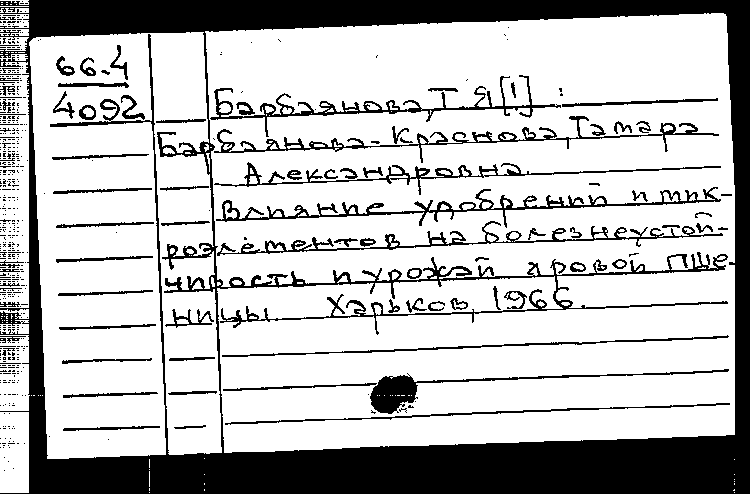 66.4
4092
Барбаянова, Т. Я [!] :
Барбаянова-Краснова, Тамара
Александровна.
Влияние удобрений и мик-
роэлементов на болезнеустой-
чивость и урожай яровой пше-
ницы. Харьков, 1966.